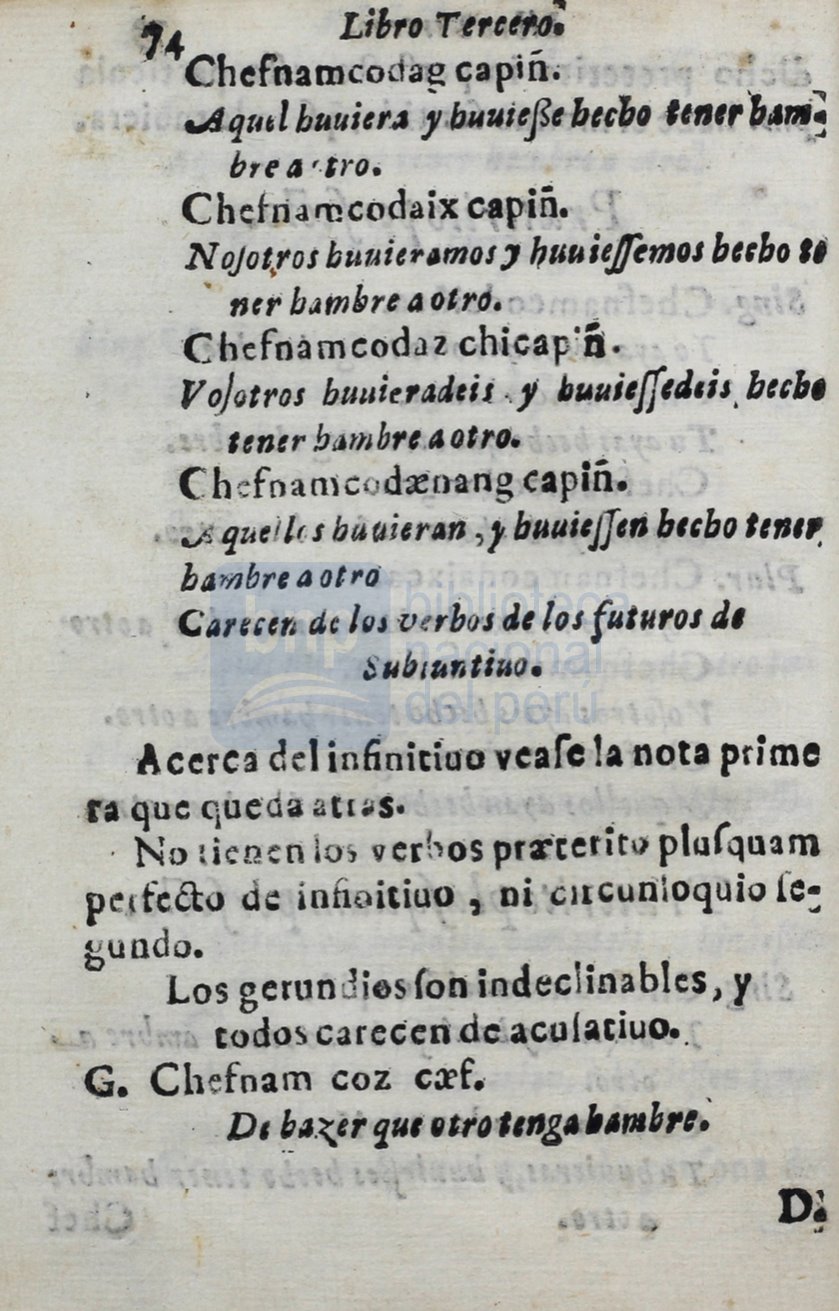 74 Libro Tercero.
Cheſnamcodag capiñ.
Aquel huuiera y huuieſſe hecho tener ham-
bre a otro.
Cheſnamcodaix capiñ.
Noſotros huuieramos y huuieſſemos hecho te
ner hambre a otro.
Cheſnamcodaz chicapiñ.
Voſotros huuieradeis y huuieſſedeis hecho
tener hambre a otro.
Cheſnamcodænang capiñ.
Aquellos huuieran, y huuieſſen hecho tener
hambre a otro
Carecen de los verbos de los futuros de
Subiuntiuo.
Acerca del infinitiuo veaſe la nota prime
ra que queda atras.
No tienen los verbos præterito pluſquam
perfecto de infinitiuo, ni circunloquio ſe-
gundo.
Los gerundios ſon indeclinables, y
todos carecen de acuſatiuo.
G. Cheſnam coz cæf.
De hazer que otro tenga hambre.
D.
bnp biblioteca
nacional
del perú